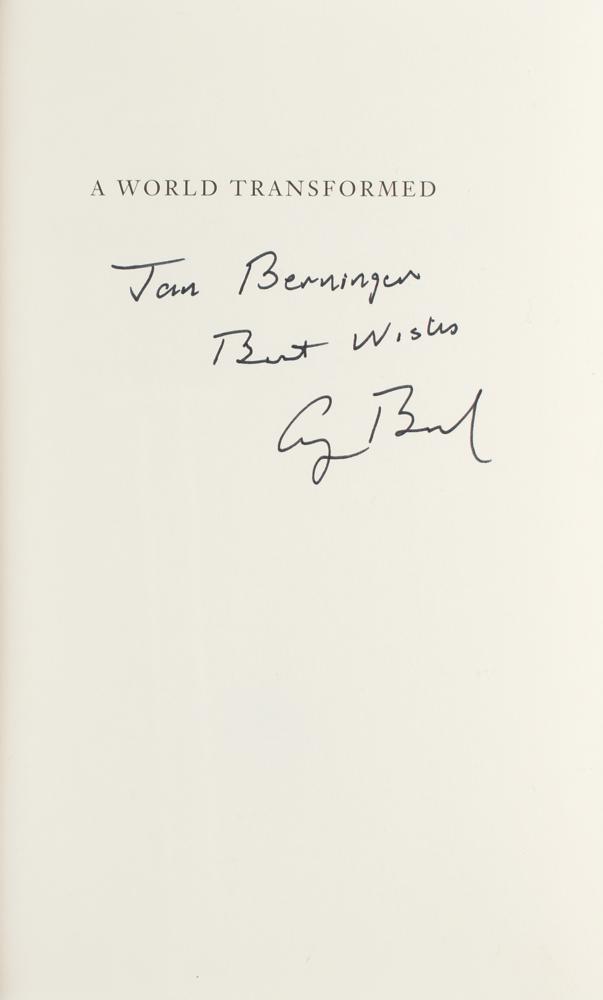 A WORLD TRANSFORMED
Jan Berninger
Best Wishes
G Bush